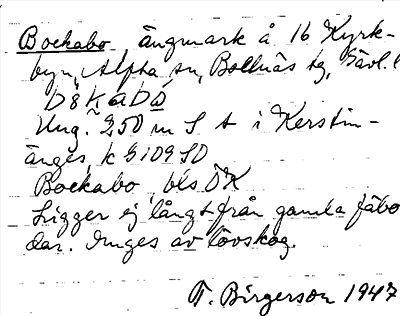 Bockabo, ängmark å 16 Kyrk-
byn, Alfta sn, Bollnäs tg, Gävl.l
Ung. 250 m S t i Kerstin-
änges, k 5109 SO
Bockabo, bls ÖK
Ligger ej långt från gamla fäbo
dar. Inges av lövskog.
T. Birgerson 1947